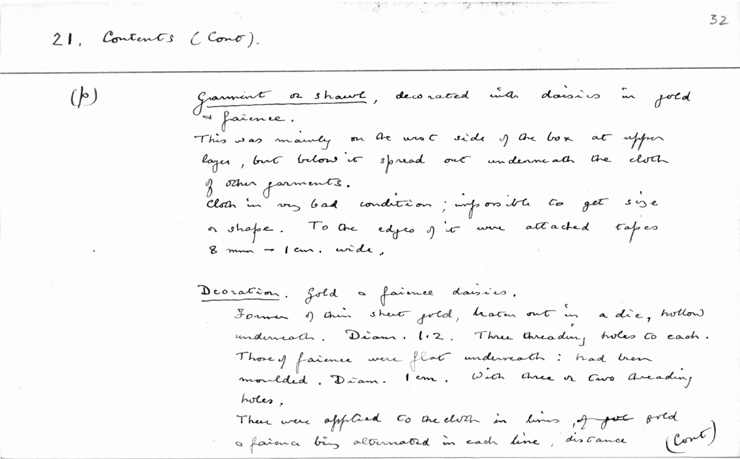 32
21. Contents (Cont).
(p)
Garment or shawl, decorated with daisies in gold
& faience.
This was mainly on the west side of the box at upper
layer, but below it spread out underneath the cloth
of other garments.
Cloth in very bad condition; impossible to get size
or shape. To the edges of it were attached tapes
8 mm → 1 cm. wide.
Decoration. Gold & faience daisies.
Former of thin sheet gold, beaten out in a die, hollow
underneath. Diam. 1.2. Three threading holes to each.
Those of faience were flat underneath: had been
moulded. Diam. 1 cm. With three or two threading
holes.
These were applied to the cloth in lines, of gol gold
& faience being alternated in each line, distance (Cont)